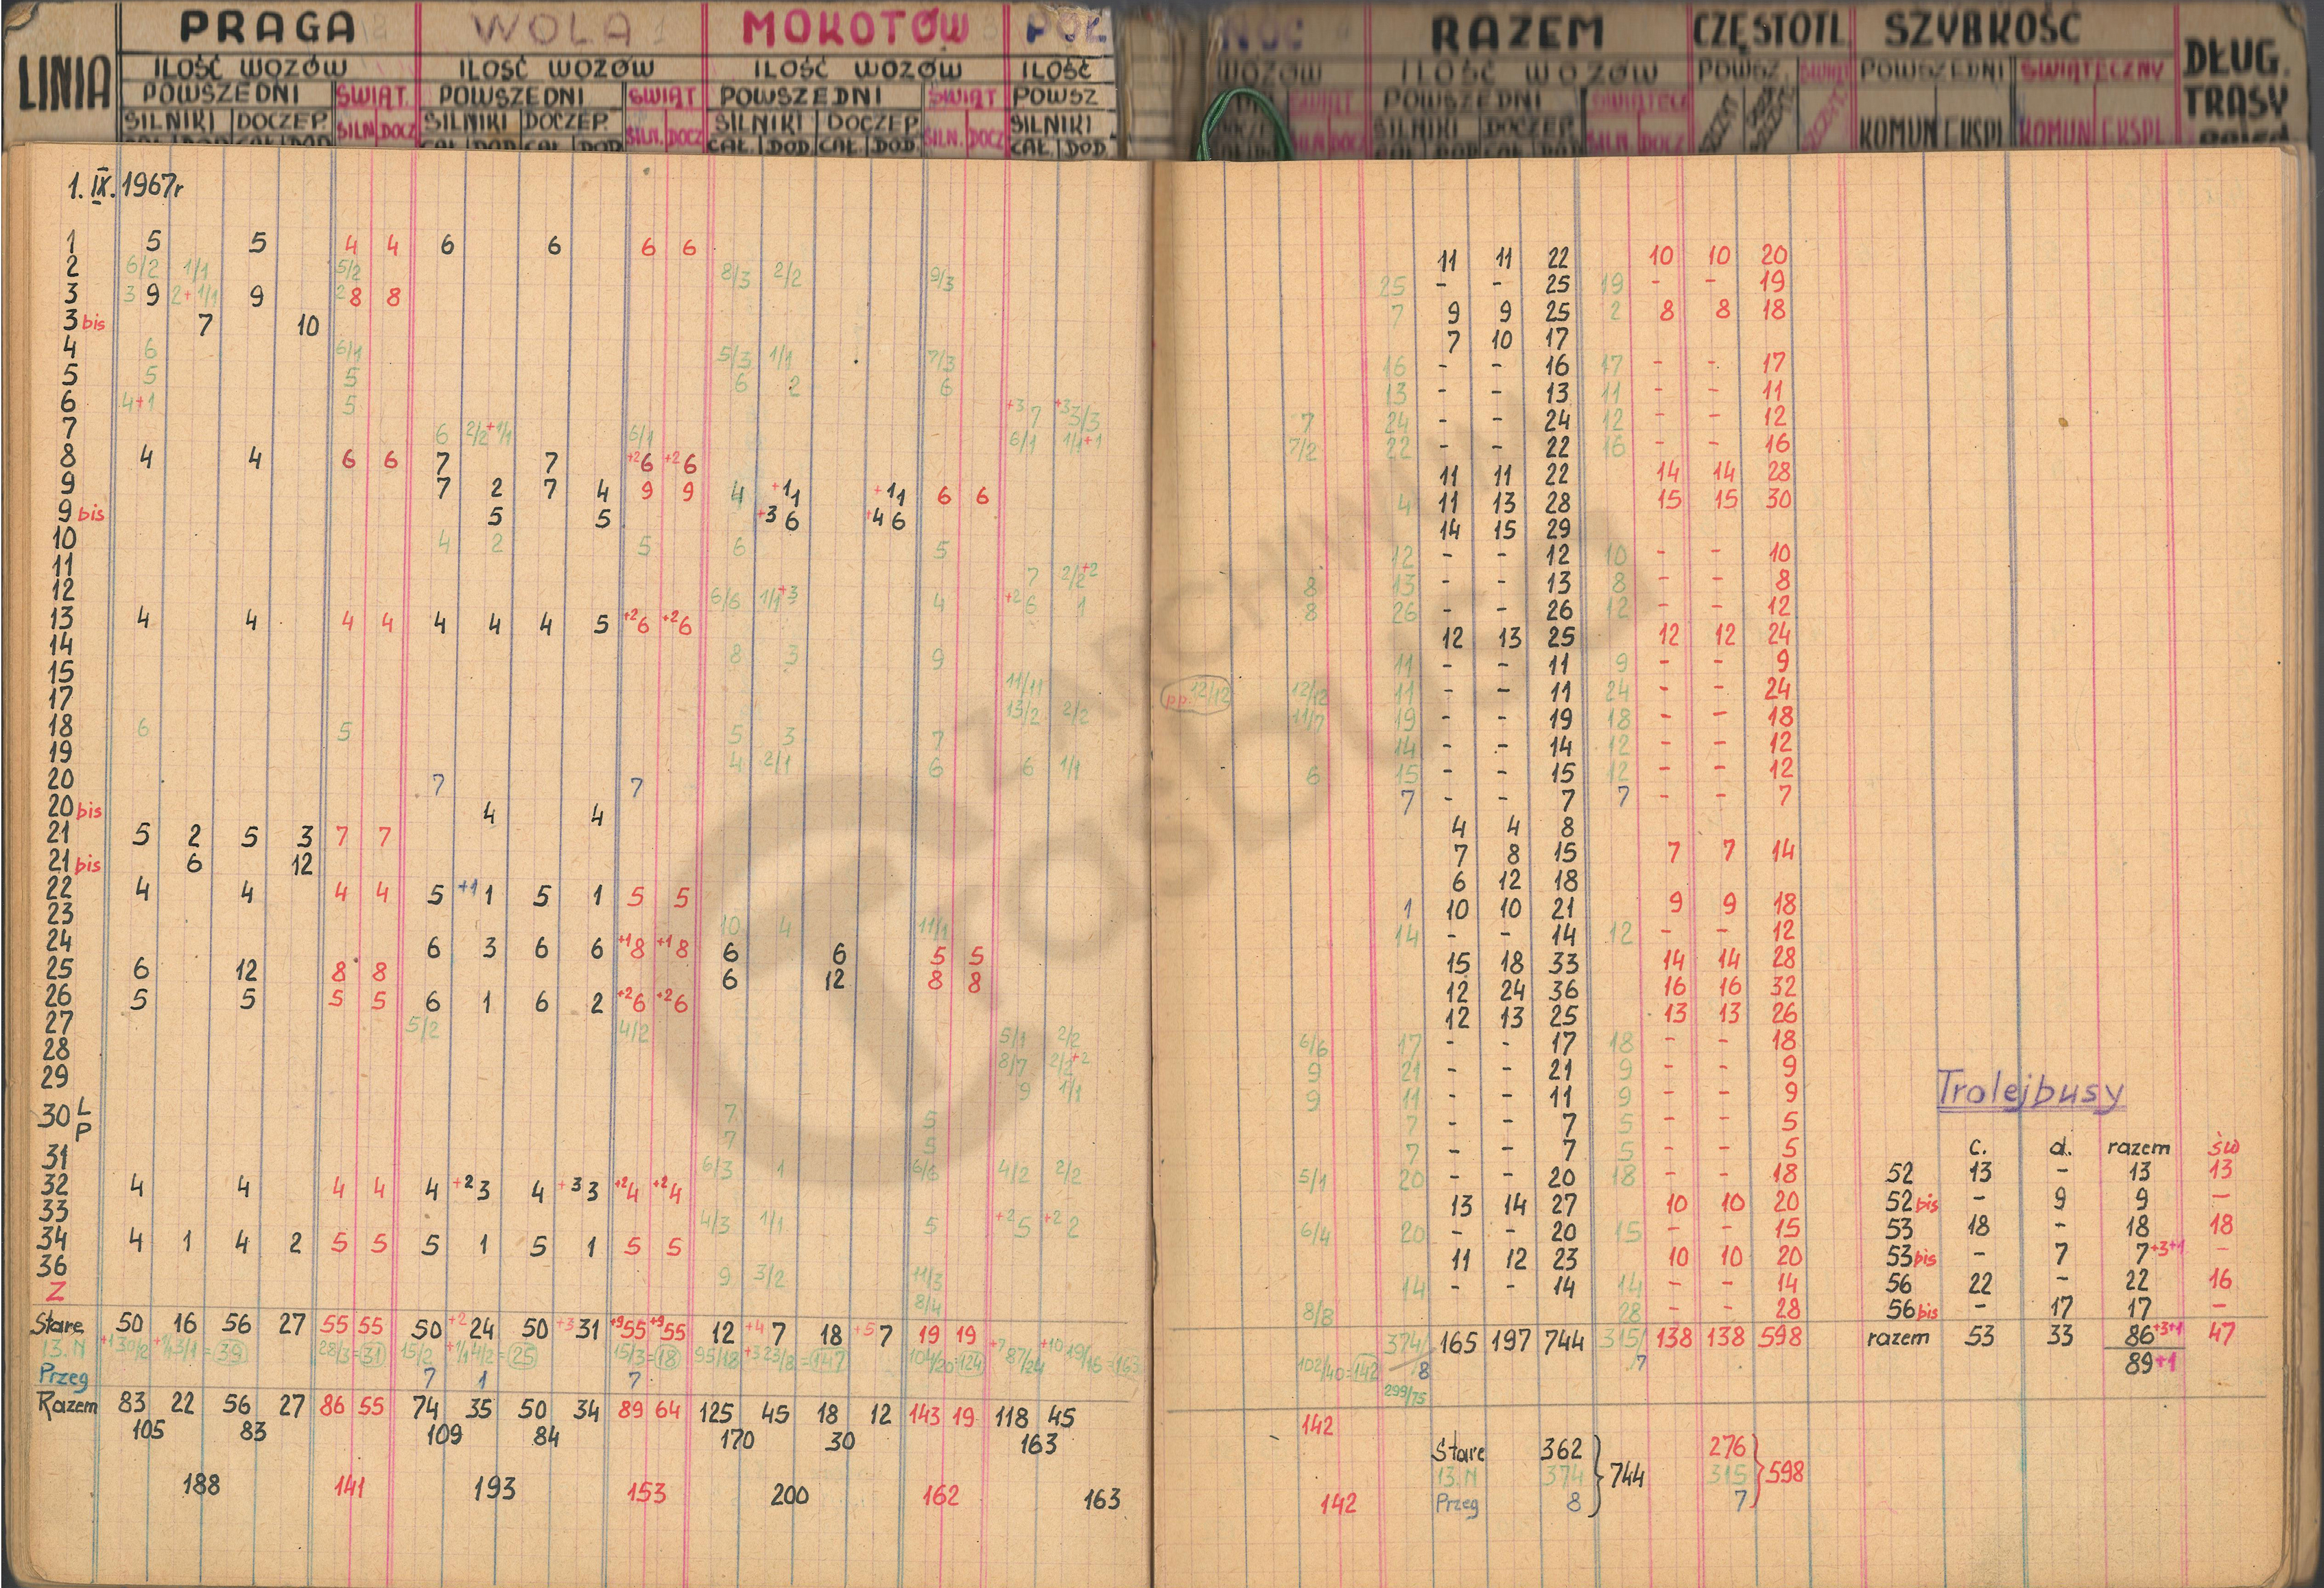 PRAGA WOLA MOKOTÓW PÓŁ NOC RAZEM CZĘSTOTL. SZYBKOŚĆ
LINIA ILOŚĆ WOZÓW ILOŚĆ WOZÓW ILOŚĆ WOZÓW ILOŚĆ WOZÓW ILOŚĆ WOZÓW POWSZ. ŚWIĄT POWSZEDNI ŚWIĄTECZNY DŁUG. TRASY
POWSZEDNI ŚWIĄT. POWSZEDNI ŚWIĄT POWSZEDNI ŚWIĄT POWSZ ŚWIĄT POWSZEDNI
SILNIKI DOCZEP SILN. DOCZ SILNIKI DOCZEP. SILN. DOCZ SILNIKI DOCZEP SILN. DOCZ SILNIKI SILN. DOCZ SILNIKI DOCZEP SILN DOCZ KOMUN EKSPL KOMUN EKSPL
CAŁ. DOD. CAŁ. DOD. CAŁ. DOD. CAŁ. DOD. CAŁ. DOD.
1.IX.1967r
1 5 5 4 4 6 6 6 6 11 11 22 10 10 20
2 6/2 1/1 5/2 8/3 2/2 9/3 25 - - 25 19 - - 19
3 3 9 2+1/1 9 2 8 8 7 9 9 25 2 8 8 18
3 bis 7 10 7 10 17
4 6 6/1 5/3 1/1 7/3 16 - - 16 17 - - 17
5 5 5 6 2 6 13 - - 13 11 - - 11
6 4+1 5 +3 7 +3 3/3 7 24 - - 24 12 - - 12
7 6 2/2+1/1 6/1 6/1 1/1+1 7/2 22 - - 22 16 - - 16
8 4 4 6 6 7 7 +2 6 +2 6 11 11 22 14 14 28
9 7 2 7 4 9 9 4 +1 1 +1 1 6 6 4 11 13 28 15 15 30
9 bis 5 5 +3 6 +4 6 14 15 29
10 4 2 5 6 5 12 - - 12 10 - - 10
11 7 2/2+2 8 13 - - 13 8 - - 8
12 6/6 1/1+3 4 +2 6 1 8 26 - - 26 12 - - 12
13 4 4 4 4 4 4 4 5 +2 6 +2 6 12 13 25 12 12 24
14 8 3 9 11 - - 11 9 - - 9
15 11/11 pp.12/12 12/12 11 - - 11 24 - - 24
17 13/2 2/2 11/7 19 - - 19 18 - - 18
18 6 5 5 3 7 14 - - 14 12 - - 12
19 4 2/1 6 6 1/1 6 15 - - 15 12 - - 12
20 7 7 7 - - 7 7 - - 7
20 bis 4 4 4 4 8
21 5 2 5 3 7 7 7 8 15 7 7 14
21 bis 6 12 6 12 18
22 4 4 4 4 5 +1 1 5 1 5 5 1 10 10 21 9 9 18
23 10 4 11/1 14 - - 14 12 - - 12
24 6 3 6 6 +1 8 +1 8 6 6 5 5 15 18 33 14 14 28
25 6 12 8 8 6 12 8 8 12 24 36 16 16 32
26 5 5 5 5 6 1 6 2 +2 6 +2 6 12 13 25 13 13 26
27 5/2 4/2 5/1 2/2 6/6 17 - - 17 18 - - 18
28 8/7 2/2+2 9 21 - - 21 9 - - 9
29 9 1/1 9 11 - - 11 9 - - 9
30 L 7 5 7 - - 7 5 - - 5
P 7 5 7 - - 7 5 - - 5
31 6/3 1 6/6 4/2 2/2 5/1 20 - - 20 18 - - 18
32 4 4 4 4 4 +2 3 4 +3 3 +2 4 +2 4 13 14 27 10 10 20
33 4/3 1/1 5 +2 5 +2 2 6/4 20 - - 20 15 - - 15
34 4 1 4 2 5 5 5 1 5 1 5 5 11 12 23 10 10 20
36 9 3/2 11/3 14 - - 14 14 - - 14
Z 8/4 8/8 28 - - 28
Stare 50 16 56 27 55 55 50 +2 24 50 +3 31 +9 55 +9 55 12 +4 7 18 +5 7 19 19 165 197 744 138 138 598
13.N +1 30/2 +1/1 5/1 = 39 28/3 = 31 15/2 +1/1 4/2 = 25 15/3 = 18 95/18 +3 23/8 = 147 104/20 = 124 +7 87/24 +10 19/16 = 163 102/40 = 142 374 315
Przeg 7 1 7 8 7
299/75
Razem 83 22 56 27 86 55 74 35 50 34 89 64 125 45 18 12 143 19 118 45 142
105 83 109 84 170 30 163
188 141 193 153 200 162 163 142
Stare 362 276
13.N 374 } 744 315 } 598
Przeg 8 7
Trolejbusy
c. d. razem św
52 13 - 13 13
52 bis - 9 9 -
53 18 - 18 18
53 bis - 7 7+3+1 -
56 22 - 22 16
56 bis - 17 17 -
razem 53 33 86+3+1 47
89+1